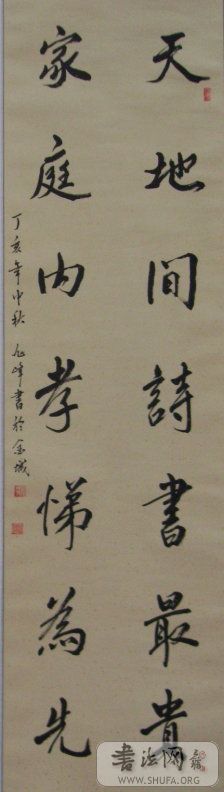 天地間詩書最貴
家庭內孝悌為先
丁亥年中秋 旭峰書於金城
書法网
WWW.SHUFA.ORG